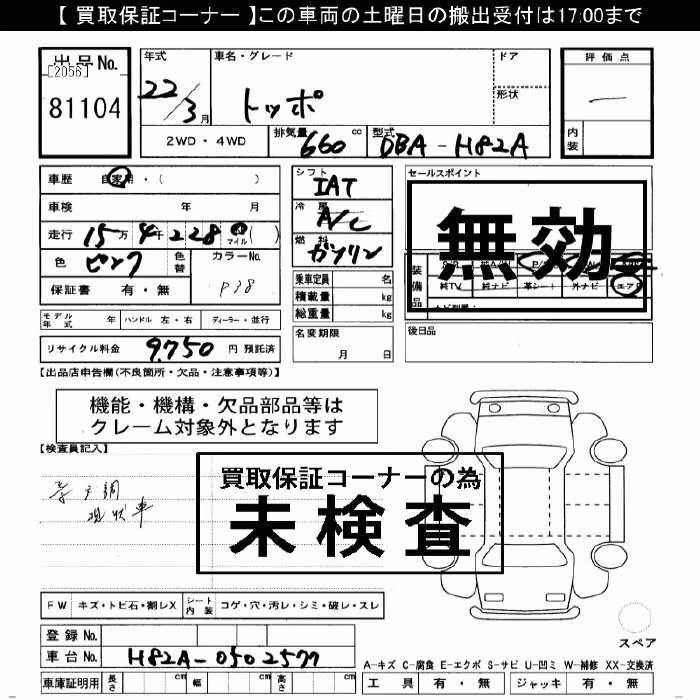 【 買取保証コーナー 】この車両の土曜日の搬出受付は17:00まで
出品No.
[2056]
81104
年式
22/3月
車名・グレード
トッポ
ドア
形状
評価点
内装
2WD・4WD
排気量 660 cc
型式 DBA-H82A
車歴 自家用・( )
車検 年 月
走行 15万4千228 マイル ( )
色 ピンク
色替
カラーNo.
P38
保証書 有・無
シフト IAT
冷房 A/C
燃料 ガソリン
乗車定員 名
積載量 kg
総重量 kg
セールスポイント
無効
装備品
純TV 純ナビ 革シート 外ナビ エアB
モデル年式 年 ハンドル 左・右 ディーラー・並行
名変期限
月 日
後日品
リサイクル料金 9,750 円 預託済
【出品店申告欄(不良箇所・欠品・注意事項等)】
機能・機構・欠品部品等は
クレーム対象外となります
【検査員記入】
現状車
買取保証コーナーの為
未検査
FW キズ・トビ石・割レX シート内装 コゲ・穴・汚レ・シミ・破レ・スレ
スペア
登録No.
車台No. H82A-0502577
A-キズ C-腐食 E-エクボ S-サビ U-凹ミ W-補修 XX-交換済
車庫証明用 長さ cm 幅 cm 高さ cm
工具 有・無 ジャッキ 有・無